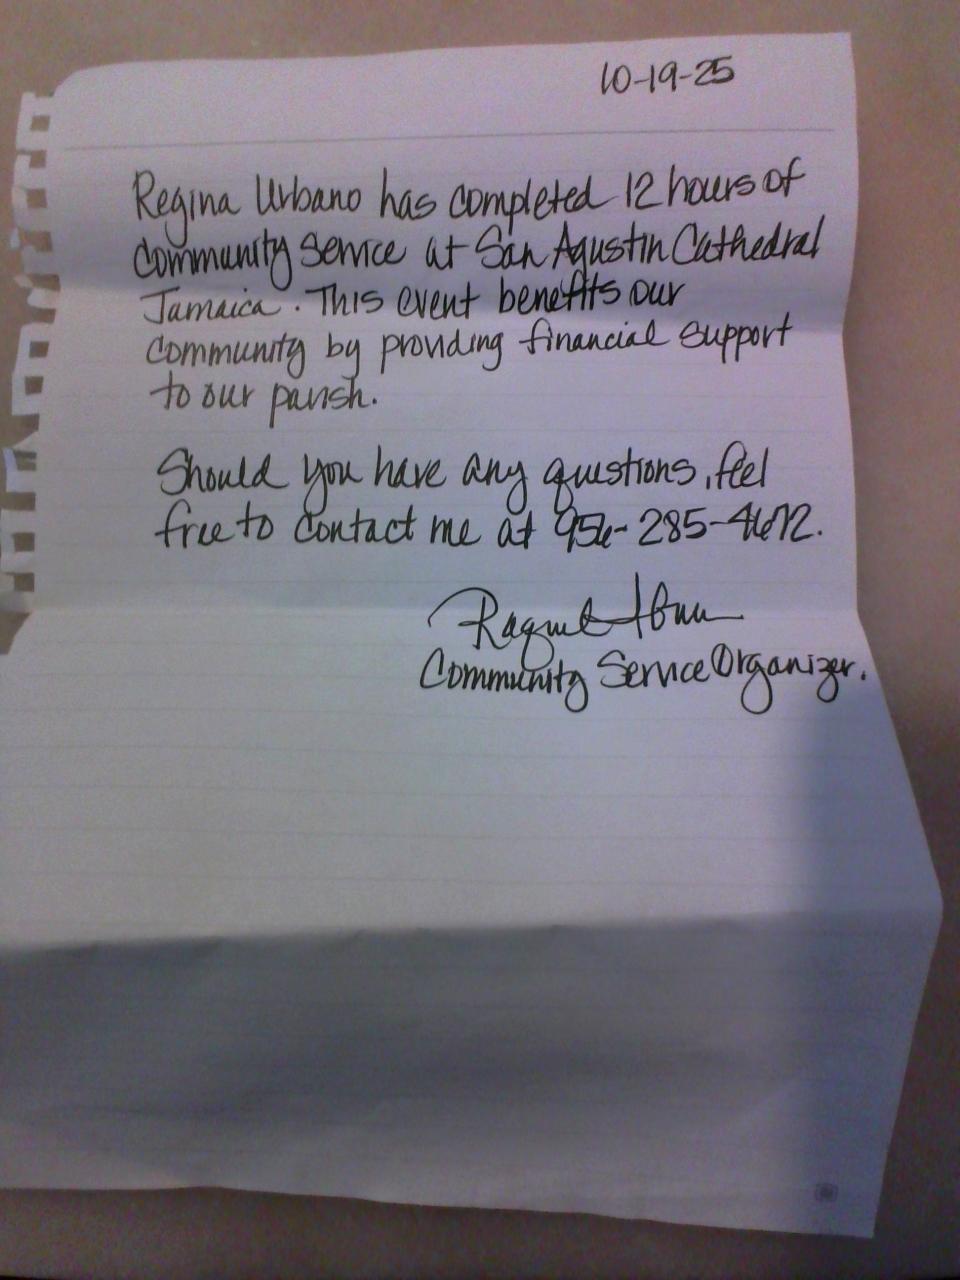 10-19-25
Regina Urbano has completed 12 hours of
community service at San Agustin Cathedral
Jamaica. This event benefits our
community by providing financial support
to our parish.
Should you have any questions, feel
free to contact me at 956-285-4672.
Raquel
Community Service Organizer.